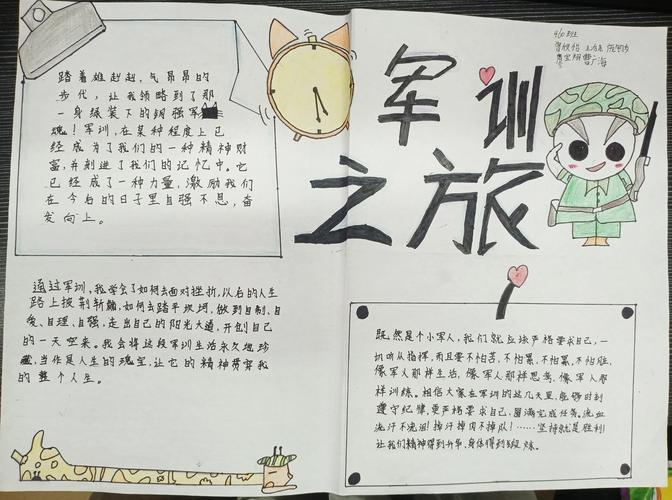 军训
之旅
踏着雄赳赳，气昂昂的
步代，让我领略到了那
一身绿装下的钢强军
魂！军训，在某种程度上已
经成为了我们的一种精神财
富，并刻进了我们的记忆中。它
已经成了一种力量，激励我们
在今后的日子里自强不息，奋
发向上。
通过军训，我学会了如何去面对挫折，以后的人生
路上披荆斩棘，如何去踏平坎坷，做到自制、自
爱、自理、自强，走出自己的阳光大道，开创自己
的一天空来。我会将这段军训生活永久地珍
藏，当作是人生的瑰宝，让它的精神贯穿我
的整个人生。
既然是个小军人，我们就应该严格要求自己，一
切听从指挥，而且要不怕苦、不怕累、不怕脏，
像军人那样生活，像军人那样思考，像军人那
样训练。相信大家在军训的这几天里，能够时刻
遵守纪律，更严格要求自己，圆满完成任务。流血
流汗不流泪！掉汗掉肉不掉队！……坚持就是胜利！
让我们精神得到升华、身体得到锻炼。